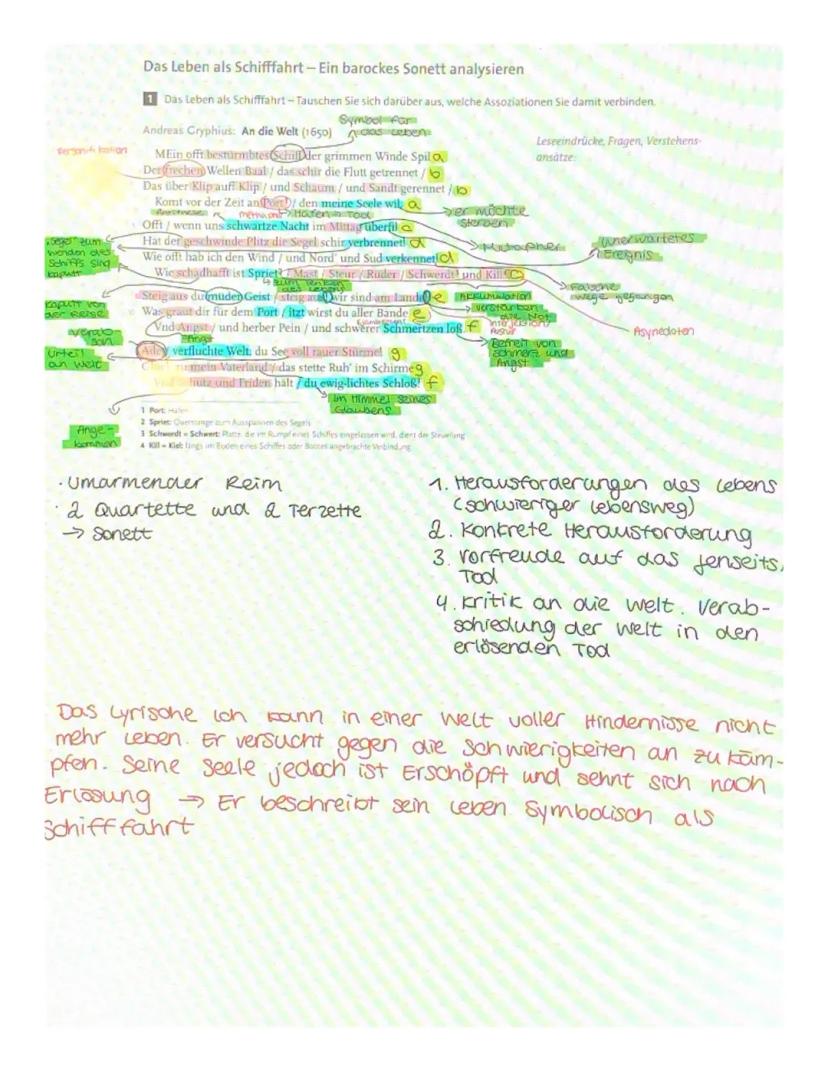 Das Leben als Schifffahrt – Ein barockes Sonett analysieren
1 Das Leben als Schifffahrt – Tauschen Sie sich darüber aus, welche Assoziationen Sie damit verbinden.
Symbol für
das Leben
Andreas Gryphius: An die Welt (1650)
Leseeindrücke, Fragen, Verstehens-
ansätze:
Personifikation
MEin offt bestürmbtes Schiff der grimmen Winde Spil a
Der frechen Wellen Baal / das schir die Flutt getrennet / b
Das über Klip auff Klip / und Schaum / und Sandt gerennet / b
Komt vor der Zeit an Port¹ / den meine Seele wil. a
Metapher Hafen = Tod
er möchte
sterben
Offt / wenn uns schwartze Nacht im Mittag überfil c
Hat der geschwinde Plitz die Segel schir verbrennet! d
Metapher
unerwartetes
Ereignis
Segel zum
wenden des
Schiffs sind
kaputt
Wie offt hab ich den Wind / und Nord' und Sud verkennet! d
Wie schadhafft ist Spriet² / Mast / Steur / Ruder / Schwerdt³ und Kill⁴ c
zum lenken
des Lebens
Falsche
wege gegangen
Steig aus du müder Geist / steig aus! wir sind am Lande! e
Akkumulation
kaputt von
der Reise
Was graut dir für dem Port / itzt wirst du aller Bande e
verstärken
die Not
Vnd Angst / und herber Pein / und schwerer Schmertzen loß. f
Interjektion
Asyndeton
Angst
Befreit von
schmerz und
Angst
Verab-
Urteil
an Welt
Ade / verfluchte Welt: du See voll rauer Stürme! g
mein Vaterland / das stette Ruh' im Schirme g
Schutz und Friden hält / du ewig-lichtes Schloß! f
im Himmel seines
Glaubens
Ange-
kommen
1 Port: Hafen
2 Spriet: Querstange zum Ausspannen des Segels
3 Schwerdt = Schwert: Platte, die im Rumpf eines Schiffes eingelassen wird, dient der Steuerung
4 Kill = Kiel: längs im Boden eines Schiffes oder Bootes angebrachte Verbindung
· Umarmender Reim
· 2 Quartette und 2 Terzette
→ Sonett
1. Herausforderungen des Lebens
(schwieriger Lebensweg)
2. Konkrete Herausforderung
3. Vorfreude auf das Jenseits,
Tod
4. Kritik an die Welt. Verab-
schiedung der Welt in den
erlösenden Tod
Das Lyrische Ich kann in einer Welt voller Hindernisse nicht
mehr Leben. Er versucht gegen die Schwierigkeiten an zu käm-
pfen. Seine Seele jedoch ist Erschöpft und sehnt sich nach
Erlösung → Er beschreibt sein Leben Symbolisch als
Schifffahrt